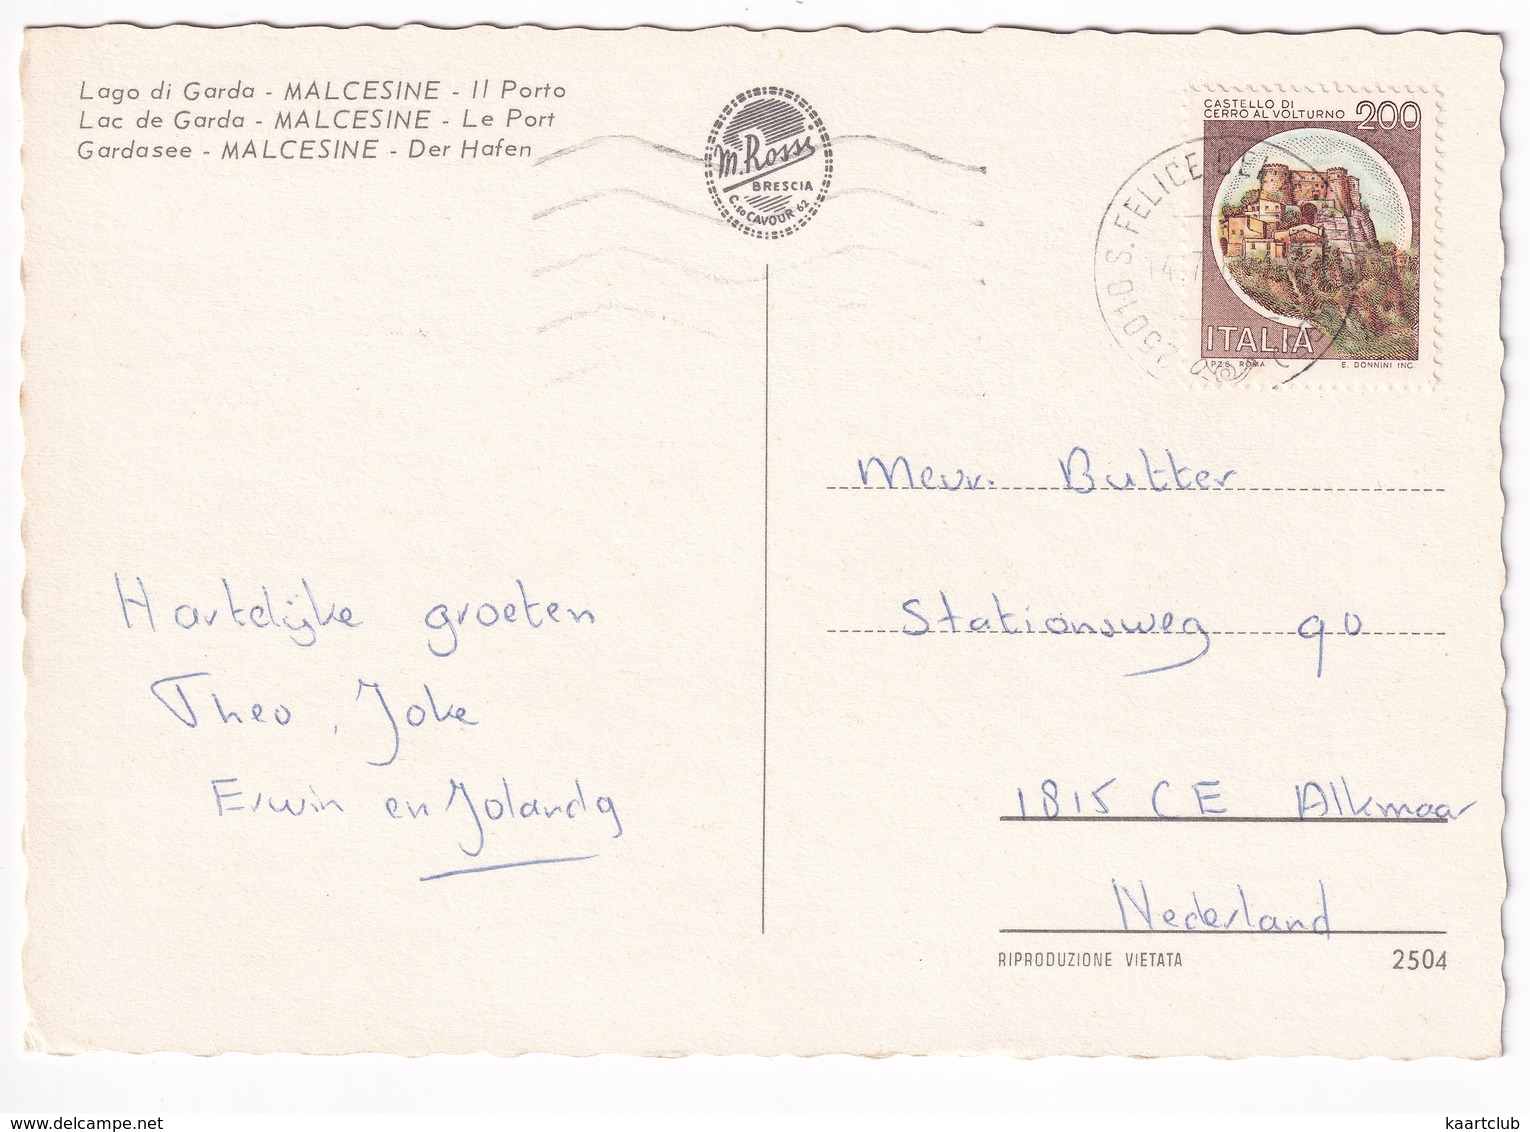 Lago di Garda - MALCESINE - Il Porto
Lac de Garda - MALCESINE - Le Port
Gardasee - MALCESINE - Der Hafen
M. Rossi
BRESCIA
C.so CAVOUR 62
CASTELLO DI
CERRO AL VOLTURNO 200
ITALIA
I.P.Z.S. ROMA E. DONNINI INC.
25010 S. FELICE DEL
14.7
Mevr. Butter
Stationsweg 90
1815 CE Alkmaar
Nederland
Hartelijke groeten
Theo, Joke
Erwin en Jolanda
RIPRODUZIONE VIETATA 2504
www.delcampe.net kaartclub